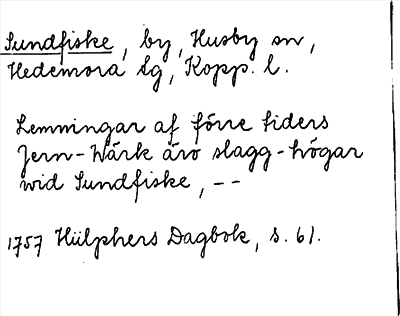 Sundfiske, by, Husby sn,
Hedemora tg, Kopp. l.
Lemningar af förre tiders
Jern-Wärk äro slagg-högar
wid Sundfiske, --
1757 Hülphers Dagbok, s. 61.